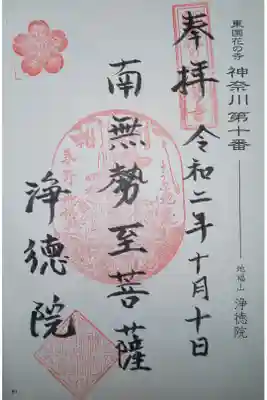 東国花の寺 神奈川 第十番 地福山 浄徳院
奉拝 令和二年十月十日
南無勢至菩薩
浄徳院